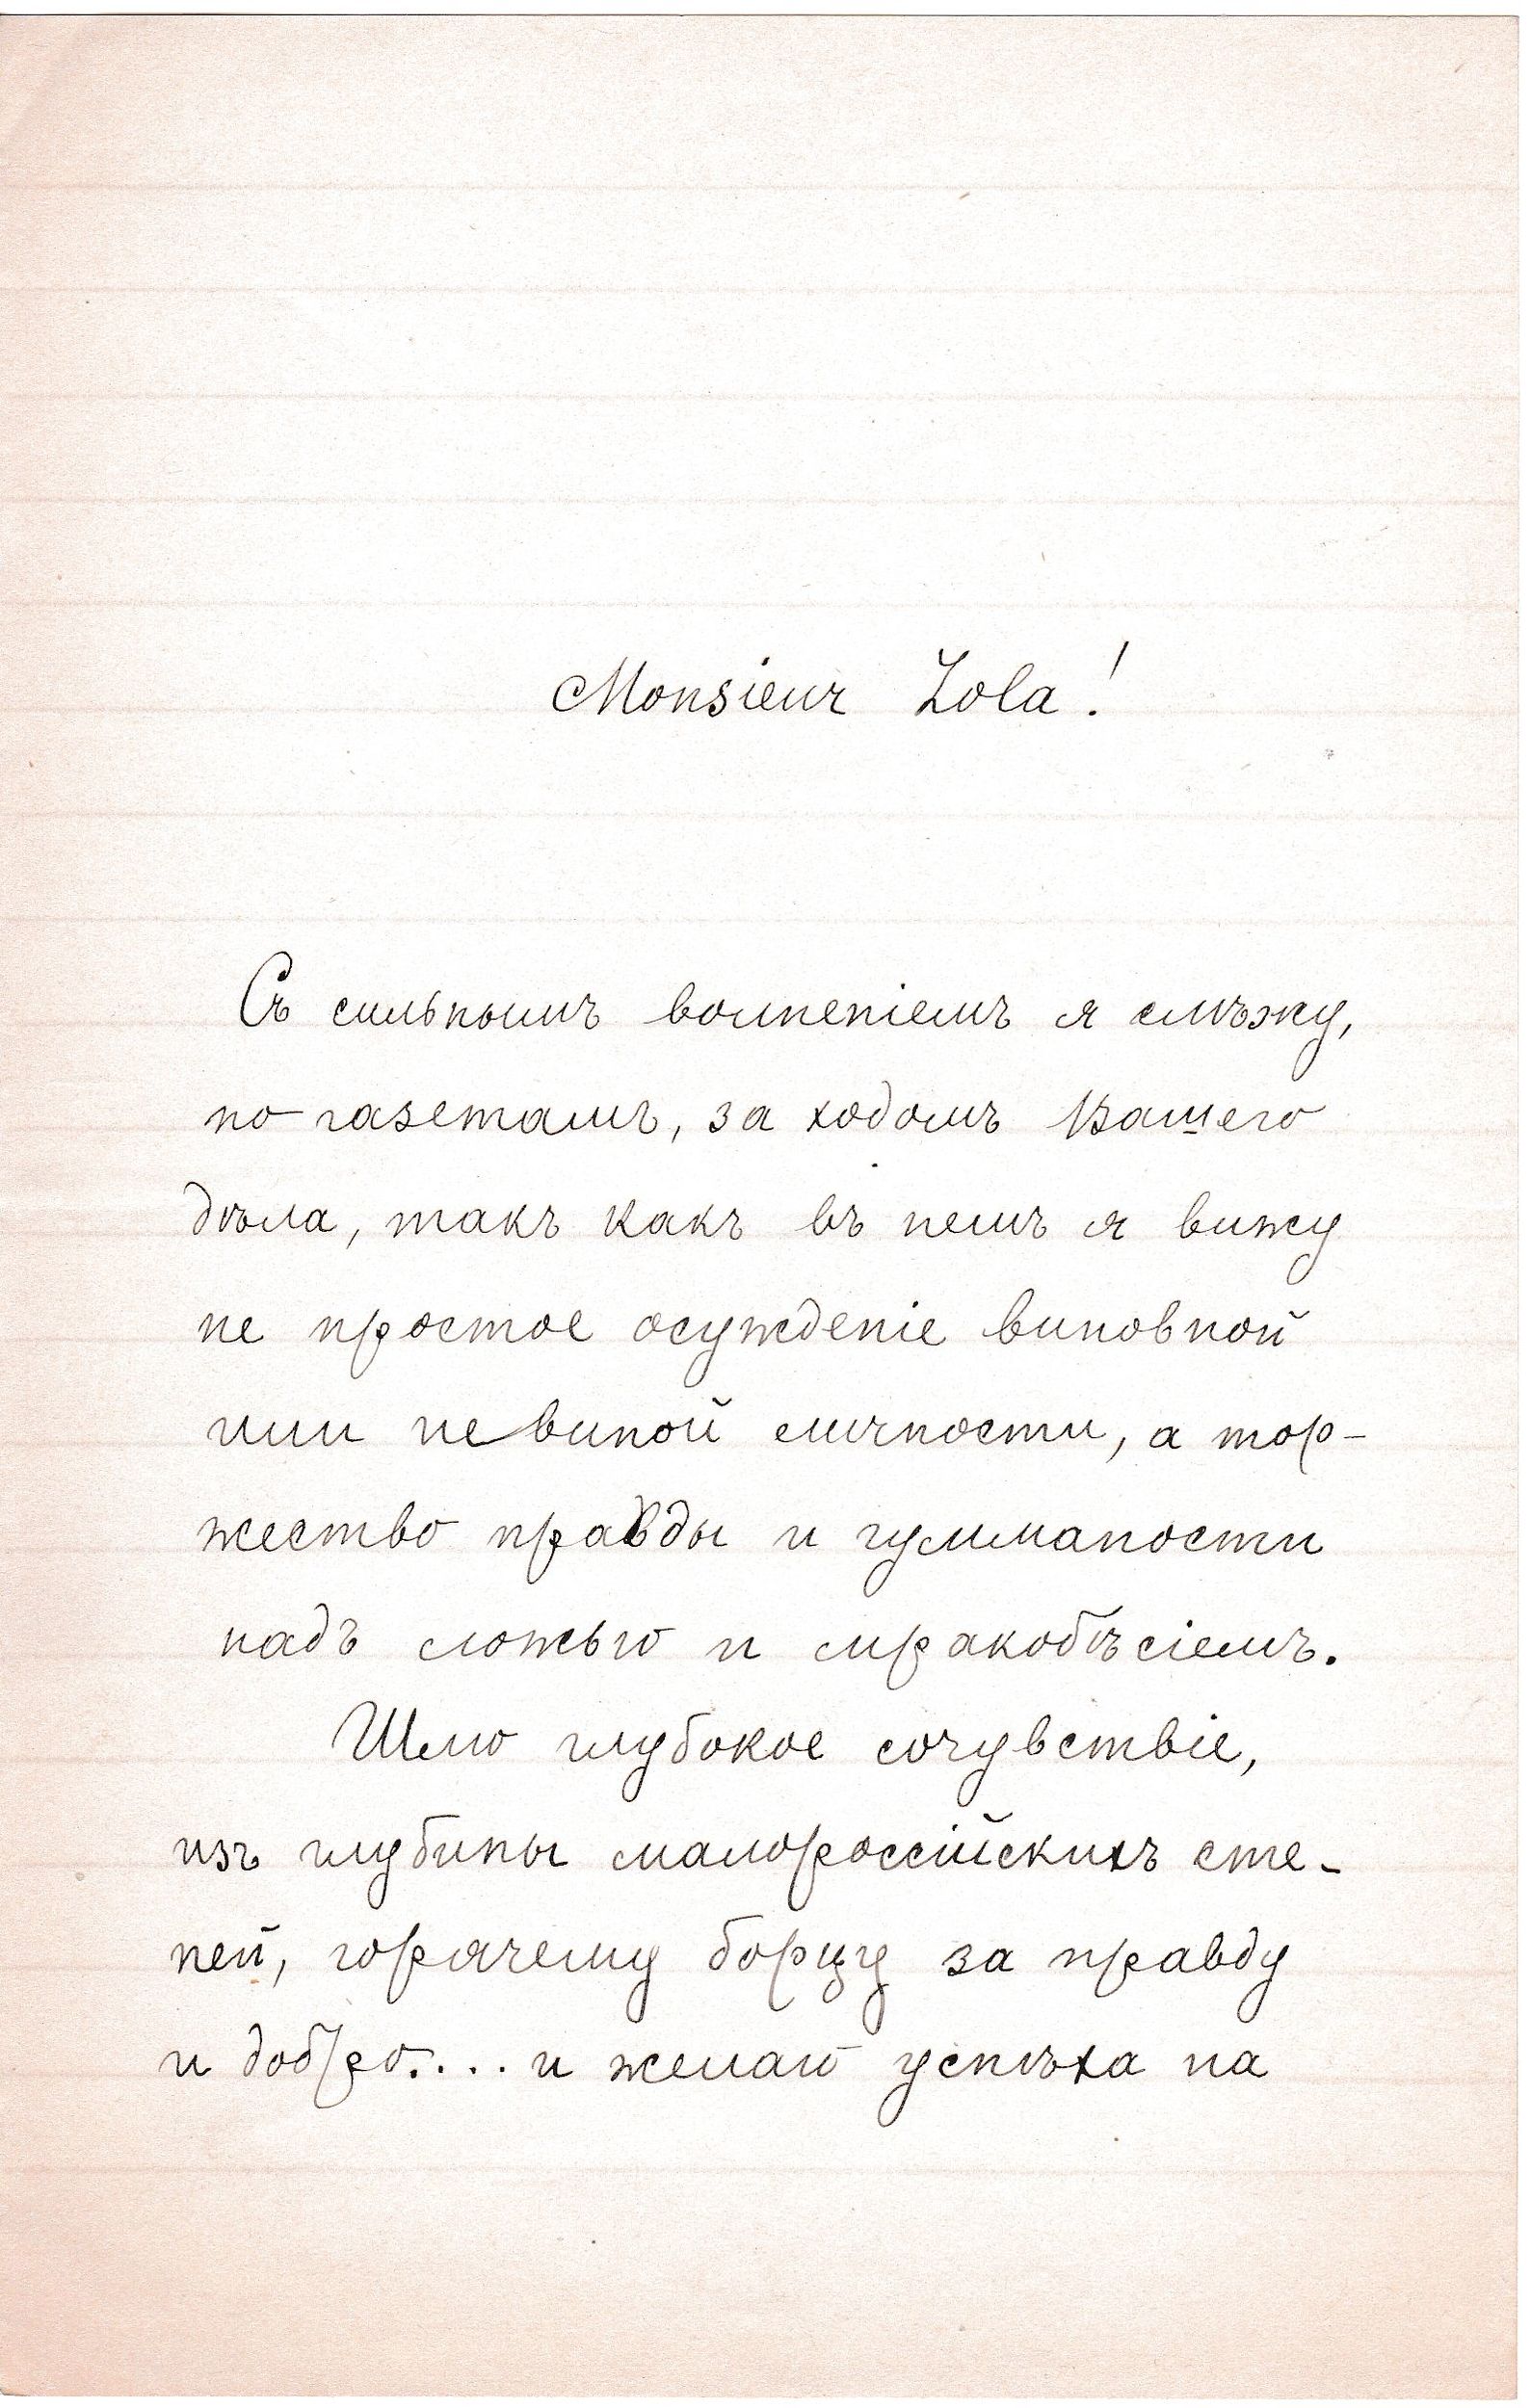 Monsieur Zola!
Съ сильнымъ волненіемъ я слѣжу,
по газетамъ, за ходомъ Вашего
дѣла, такъ какъ въ немъ я вижу
не простое осужденіе виновной
или невиной личности, а тор-
жество правды и гумманости
надъ ложью и мракобѣсіемъ.
Шлю глубокое сочувствіе,
изъ глубины малороссійскихъ сте-
пей, горячему борцу за правду
и добро.... и желаю успѣха на